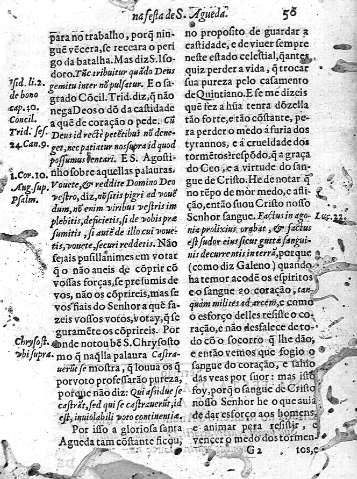 na festa de S. Agueda. 56
para no trabalho, porq̃ nin-
guẽ vẽcera, se reccara o peri-
go da batalha. Mas diz S. Isi-
doro. Tũc tribuitur quãdo Deus
gemitu inter nõ pulsatur. E o sa-
grado Cõcil. Trid. diz, q̃ não
nega Deos o dõ da castidade
a quẽ de coração o pede. Cũ
Deus id rectè petẽtibus nõ dene-
get, nec patiatur nos supra id quod
possumus tentari. E S. Agosti-
nho sobre aquellas palauras.
Vouete, & reddite Domino Deo
vestro, diz, nõ sitis pigri ad vouẽ
dum, nõ enim viribus vestris im
plebitis, deficietis, si de vobis præ
sumitis, si autẽ de illo cui voue-
tis, vouete, securi redditis. Não
sejais pusillanimes em votar
q̃ o não aueis de cõprir cõ
vossas forças, se presumis de
vòs, não os cõprireis, mas se
vos fiais do Senhor a quẽ fa-
zeis vossos votos, votay, q̃ se
guramẽte os cõprireis. Por
onde notou bẽ S. Chrysosto
mo q̃ naq̃lla palaura Castra-
uerũt se mostra, q̃ louua os q̃
por voto professarão pureza,
porque não diz: Qui abscidũt se
castrãt, sed qui se castrauerũt, id
est, inuiolabili voto continentiæ.
Por isso a gloriosa santa
Agueda tam cõstante ficou,
Isid. li. 2.
de bono
cap. 40.
Concil.
Trid. ses.
24. Can. 9.
1. Cor. 10.
Aug. sup.
Psalm.
Chrysost.
vbi supra.
no proposito de guardar a
castidade, e de viuer sempre
neste estado celestial, q̃ antes
quiz perder a vida, q̃ trocar
sua pureza pelo casamento
de Quintiano. E se me dizeis
que fez a hũa tenra dõzella
tão forte, e tão cõstante, pe-
ra perder o medo á furia dos
tyrannos, e á crueldade dos
tormẽtos? respõdo, q̃ a graça
do Ceo, e a virtude do san-
gue de Christo. He de notar q̃
no tẽpo de mòr medo, e asti-
ção, então suou Christo nosso
Senhor sangue. Factus in ago
nia prolixius orabat, & factus
est sudor eius sicut gutta sangui-
nis decurrentis in terrã, porque
(como diz Galeno) quando
ha temor acodẽ os espiritos
e o sangue ao coração, tan-
quam milites ad arcem, e como
o esforço delles resiste o co-
ração, e não desfalece de to-
do cõ o socorro q̃ lhe dão,
e então vemos que fogio o
sangue do coração, e sahio
das veas por suor: mas isto
foy, porq̃ o sangue de Christo
nosso Senhor he o que auia
de dar esforço aos homens,
e animar pera resistir, e
vencer o medo dos tormen
Luc. 22.
G 2 tos, e